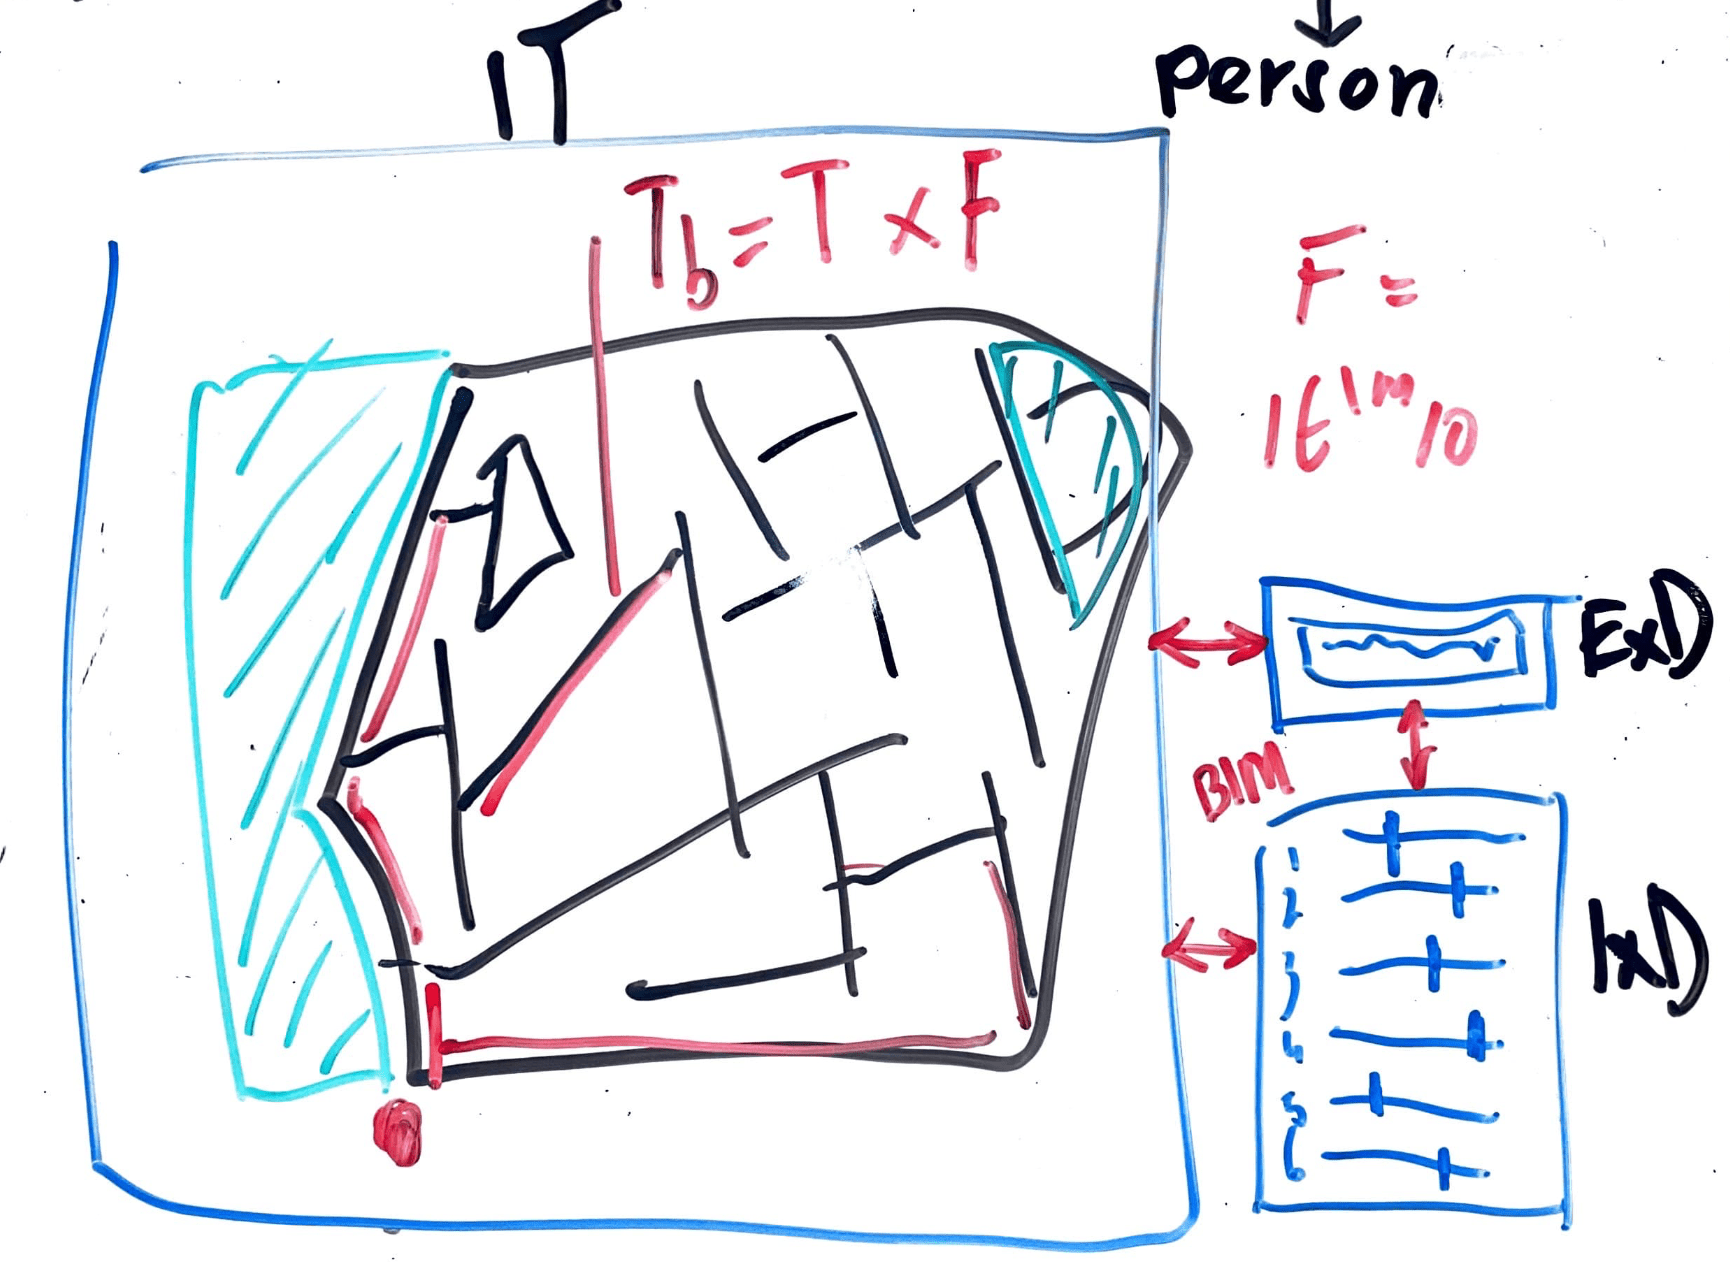 IT
person
Tb = T x F
F =
1E1m10
ExD
BIM
1
2
3
4
5
6
IxD